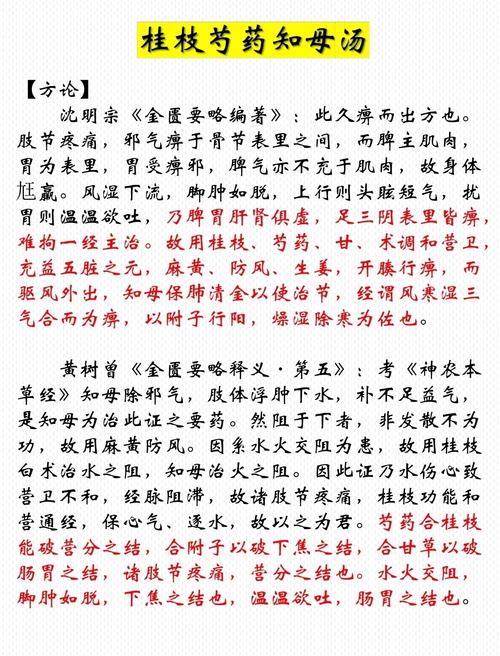 桂枝芍药知母汤
【方论】
沈明宗《金匮要略编著》：此久痹而出方也。
肢节疼痛，邪气痹于骨节表里之间，而脾主肌肉，
胃为表里，胃受痹邪，脾气亦不充于肌肉，故身体
尪羸。风湿下流，脚肿如脱，上行则头眩短气，扰
胃则温温欲吐，乃脾胃肝肾俱虚，足三阴表里皆痹，
难拘一经主治。故用桂枝、芍药、甘、术调和营卫，
充益五脏之元，麻黄、防风、生姜，开腠行痹，而
驱风外出，知母保肺清金以使治节，经谓风寒湿三
气合而为痹，以附子行阳，燥湿除寒为佐也。
黄树曾《金匮要略释义·第五》：考《神农本
草经》知母除邪气，肢体浮肿下水，补不足益气，
是知母为治此证之要药。然阻于下者，非发散不为
功，故用麻黄防风。因系水火交阻为患，故用桂枝
白术治水之阻，知母治火之阻。因此证乃水伤心致
营卫不和，经脉阻滞，故诸肢节疼痛，桂枝功能和
营通经，保心气、逐水，故以之为君。芍药合桂枝
能破营分之结，合附子以破下焦之结，合甘草以破
肠胃之结，诸肢节疼痛，营分之结也。水火交阻，
脚肿如脱，下焦之结也，温温欲吐，肠胃之结也。